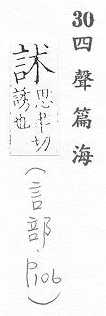 30四聲篇海
訹思聿切
誘也
(言部.P106)